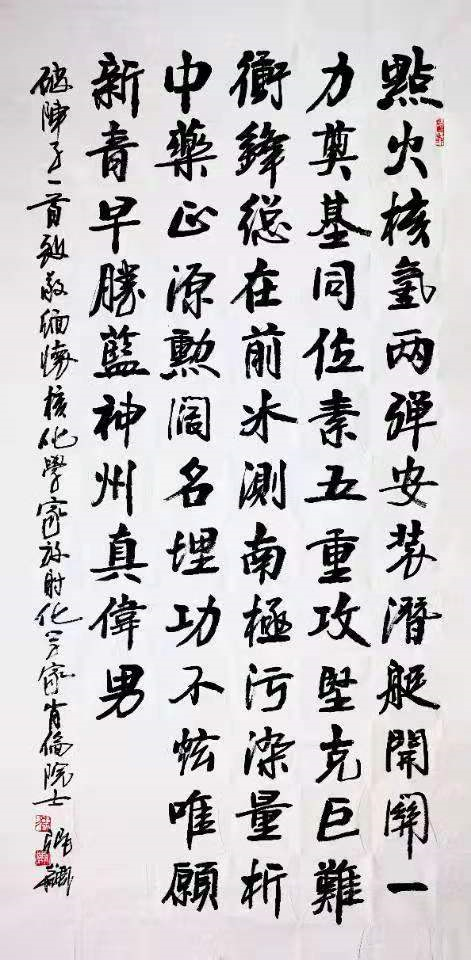 點火核氫两弹安装潛艇開闢一
力奠基同位素五重攻堅克巨難
衝鋒總在前冰測南極污染量析
中藥正源勳闊名埋功不炫唯願
新青早勝藍神州真偉男
破陣子一首致敬缅懷核化學家放射化学家肖倫院士